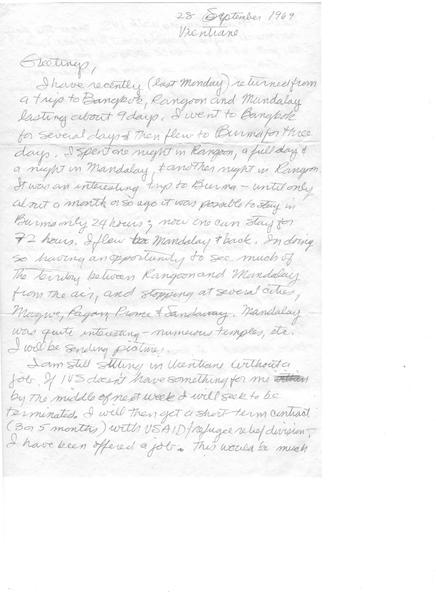 28 September 1969
Vientiane
Greetings,
I have recently (last Monday) returned from
a trip to Bangkok, Rangoon and Mandalay
lasting about 9 days. I went to Bangkok
for several days & then flew to Burma for three
days. I spent one night in Rangoon, a full day &
a night in Mandalay, & another night in Rangoon.
It was an interesting trip to Burma – until only
about a month or so ago it was possible to stay in
Burma only 24 hours; now one can stay for
72 hours. I flew to Mandalay & back. In doing
so having an opportunity to see much of
the territory between Rangoon and Mandalay
from the air, and stopping at several cities,
Magwe, Pagan, Prome & Sandoway. Mandalay
was quite interesting – numerous temples, etc.
I will be sending pictures.
I am still sitting in Vientiane without a
job. If IVS doesn't have something for me
by the middle of next week I will seek to be
terminated. I will then get a short-term contract
(3 or 5 months) with USAID/refugee relief division;
I have been offered a job. This would be much